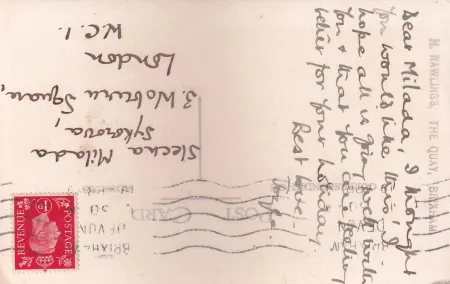 M. RAWLINGS, THE QUAY, BRIXHAM
Dear Milada, I thought
you would like this, I
hope all is going well with
you & that you are feeling
better for your holiday.
Best love,
POST CARD
Slecna Milada
Sykorova,
3. Woburn Square,
London
W.C.1.
BRIXHAM
DEVON
POSTAGE
REVENUE